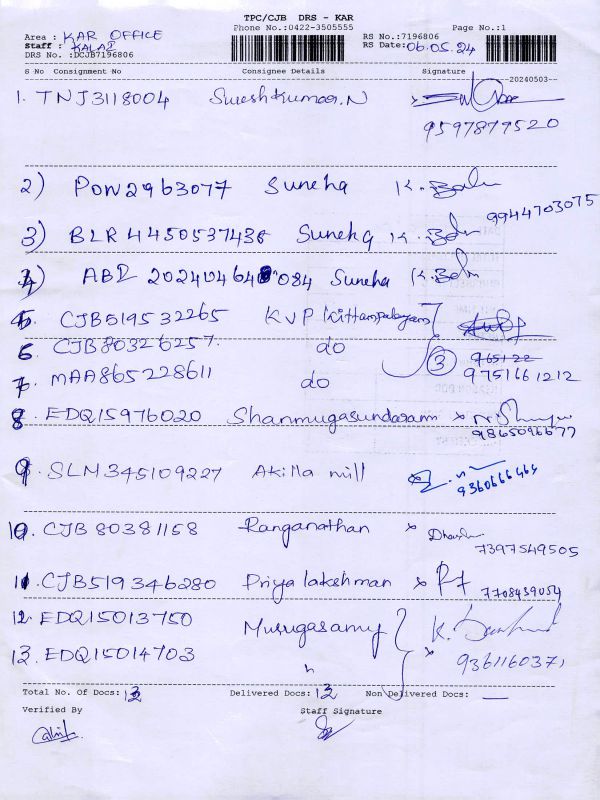 TPC/CJB DRS - KAR
Phone No.:0422-3505555
Page No.:1
Area : KAR OFFICE
RS No.:7196806
Staff : KALAI
RS Date: 06.05.24
DRS No. :DCJB7196806
S No Consignment No Consignee Details Signature
20240503
1. TNJ3118004 Sureshkumar.N
9597879520
2) PON2963077 Suneha K. Balu
9944703075
3) BLR4450537436 Suneha K. Balu
4) ABD 084 Suneha K. Balu
5. CJB519532265 KVP Kittampalayam
6. CJB80326257. do 3 965122
7. MAA865228611 do 9751661212
8. EDQ15976020 Shanmugasundaram x
9865096677
9. SLM345109227 Akilla mill
9360666464
10. CJB80381158 Ranganathan x
7397549505
11. CJB519346280 Priya lakshman x
7708439054
12. EDQ15013750 Murugasamy K.
13. EDQ15014703 "
9361160371
Total No. Of Docs: 13 Delivered Docs: 13 Non Delivered Docs: —
Verified By Staff Signature